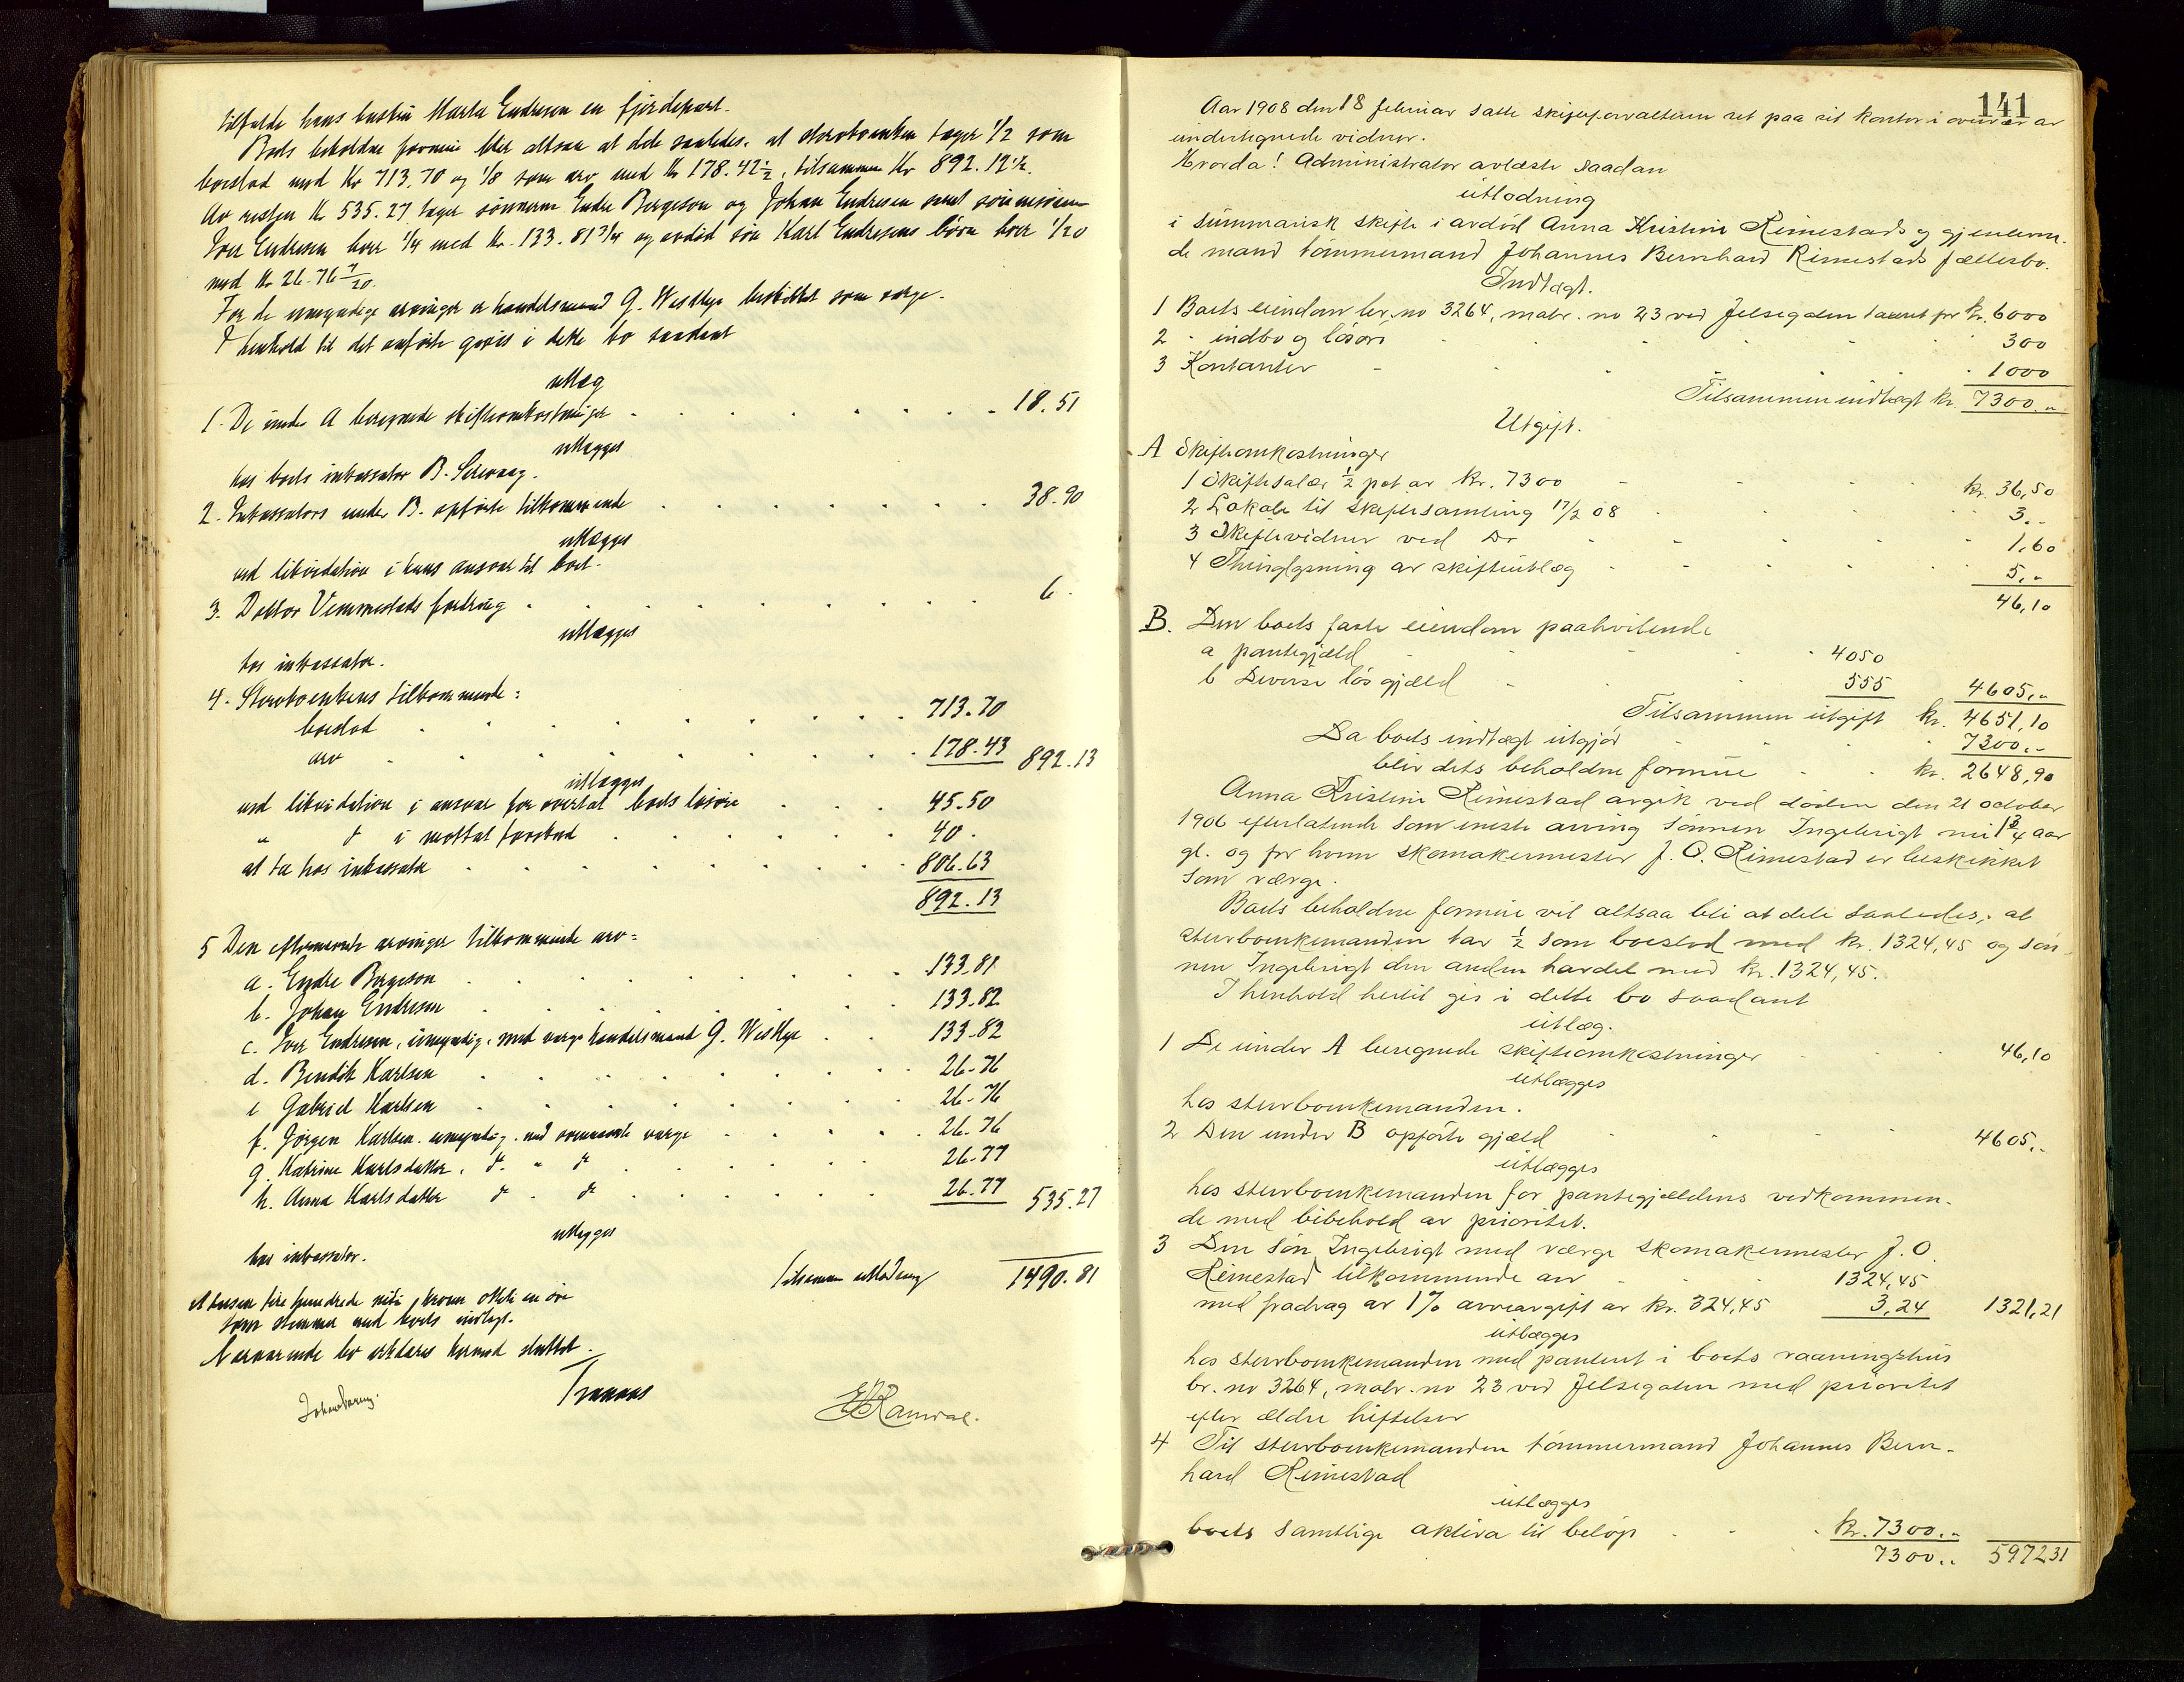 tilfalde hans hustru Marta Endresen en fjerdepart.
Boets beholdne formue blir altsaa at dele saaledes, at sterboenken tager 1/2 som
boeslod med Kr 713.70 og 1/8 som arv med Kr 178.42 1/2, tilsammen Kr 892.12 1/2.
Av resten Kr 535.27 tager sönnerne Endre Bergeson og Johan Endresen samt
Iver Endresen hver 1/4 med Kr. 133.81 3/4 og avdöd sön Karl Endresens börn hver 1/20
med Kr 26.76 7/20.
For de umyndige arvinger er handelsmand G. Westlye beskikket som værge.
I henhold til det anförte gjöres i dette bo saadant
utlæg
1. De under A beregnede skifteomkostninger 18.51
utlægges
hos boets inkassator B.
2. Inkassators under B. opförte tilkommende 38.90
utlægges
ved likvidation i hans ansvar til boet.
3. Doktor Vemmestads fordring 6.
utlægges
hos inkassator.
4. Sterboenkens tilkommende:
boeslod 713.70
arv 178.43 892.13
utlægges
ved likvidation i ansvar for overtat boets lösöre 45.50
" d i mottat forskud 40.
at ta hos inkassator 806.63
892.13
5 Den efternævnte arvinger tilkommende arv:
a. Endre Bergeson 133.81
b. Johan Endresen 133.82
c. Iver Endresen, umyndig, med værge handelsmand G. Westlye 133.82
d. Bendik Karlsen 26.76
e Gabriel Karlsen 26.76
f. Jörgen Karlsen. umyndig. med ovennævnte værge 26.76
g. Katrine Karlsdatter, d. " d 26.77
h. Anna Karlsdatter d . d 26.77 535.27
utlægges
hos inkassator.
Tilsammen utlodning 1490.81
Et tusen fire hundrede nitti kroner otteti en öre
som stemmer med boets indtægt.
Nærværende bo erklæres hermed sluttet.
141
Aar 1908 den 18 februar satte skifteforvalteren ret paa sit kontor i overvær av
undertegnede vidner.
Hvorda! Administrator avlæste saadan
utlodning
i summarisk skifte i avdöd Anna Kristine Rimestads og gjenleven-
de mand tömmermand Johannes Bernhard Rimestads fællesbo.
Indtægt.
1 Boets eiendom br. no 3264, matr. no 23 ved Jelsegaten taxeret for kr. 6000
2 " indbo og lösöre 300
3 Kontanter 1000
Tilsammen indtægt kr. 7300..
Utgift.
A Skifteomkostninger
1 Skiftesalær 1/2 pct av kr. 7300 kr. 36,50
2 Lokale til skiftesamling 17/2 08 3..
3 Skiftevidner ved Do 1,60
4 Thinglysning av skifteutlæg 5,..
46,10
B. Den boets faste eiendom paahvilende
a pantegjæld 4050
b Diverse lös gjæld 555 4605,..
Tilsammen utgift kr. 4651,10
Da boets indtægt utgjör 7300,..
blir dets beholdne formue kr. 2648,90
Anna Kristine Rimestad avgik ved döden den 21 october
1906 efterlatende som eneste arving sönnen Ingebrigt nu 1 3/4 aar
gl. og for hvem skomakermester J. O. Rimestad er beskikket
som værge.
Boets beholdne formue vil altsaa bli at dele saaledes, at
sterboenkemanden tar 1/2 som boeslod med kr. 1324,45 og sön-
nen Ingebrigt den anden halvdel med kr. 1324,45.
I henhold hertil gis i dette bo saadant
utlæg.
1 De under A beregnede skifteomkostninger 46,10
utlægges
hos sterboenkemanden.
2 Den under B opförte gjæld 4605..
utlægges
hos sterboenkemanden for pantegjældens vedkommen-
de med bibehold av prioritet.
3 Den sön Ingebrigt med værge skomakermester J. O.
Rimestad tilkommende arv 1324,45
med fradrag av 1% arveavgift av kr. 324,45 3,24 1321,21
utlægges
hos sterboenkemanden med panteret i boets vaaningshus
br. no 3264, matr. no 23 ved Jelsegaten med prioritet
efter ældre heftelser
4 Til sterboenkemanden tömmermand Johannes Bern-
hard Rimestad
utlægges
boets samtlige aktiva til beløp kr. 7300..
7300.. 5972 31